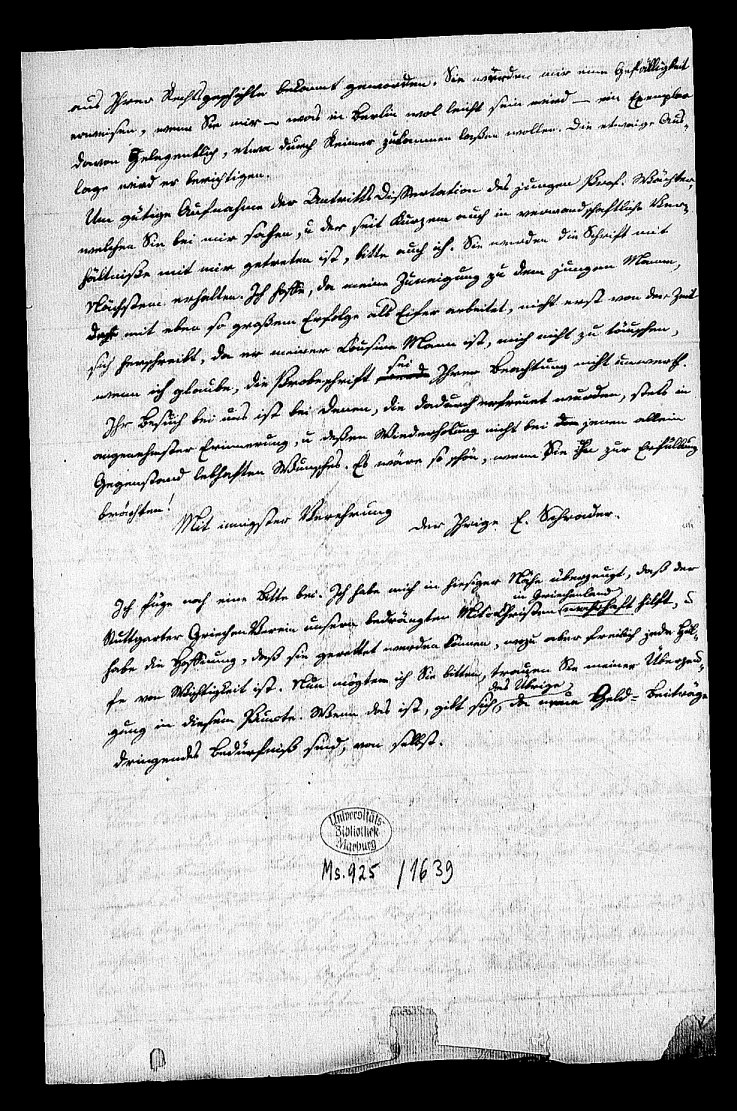 aus Ihrer Rechtsgeschichte bekannt geworden. Sie würden mir eine Gefälligkeit
erweisen, wenn Sie mir – was in Berlin wol leicht sein wird – ein Exemplar
davon Gelegentlich, etwa durch Reimer zukommen laßen wollten. Die etwaige Aus-
lage werd er berichtigen.
Um gütige Aufnahme der Antritts Dissertation des jungen Prof. Wächter,
welchen Sie bei mir sahen, u der seit Kurzem auch in verwandschaftliche Ver-
hältniße mit mir getreten ist, bitte auch ich. Sie werden die Schrift mit
Nächstem erhalten. Ich hoffe, da meine Zuneigung zu dem jungen Manne,
der mit eben so großem Erfolge als Eifer arbeitet, nicht erst von der Zeit
sich herschreibt, da er meiner Cousine Mann ist, mich nicht zu täuschen,
wenn ich glaube, die Probeschrift sei Ihrer Beachtung nicht unwerth.
Ihr Besuch bei uns ist bei Denen, die dadurch erfreuet wurden, stets in
angenehmster Erinnerung, u deßen Wiederholung nicht bei jenen allein
Gegenstand lebhaften Wunsches. Es wäre so schön, wenn Sie ihn zur Erfüllung
brächten!
Mit innigster Verehrung der Ihrige E. Schrader.
Ich füge noch eine Bitte bei. Ich habe mich in hiesiger Nähe überzeugt, daß der
Stuttgarter Griechen Verein unsern bedrängten Mit-Christen in Griechenland hilft, u
habe die Hoffnung, daß sie gerettet werden können, wozu aber freilich jede Hül-
fe von Wichtigkeit ist. Nun mögten ich Sie bitten, trauen Sie meiner Überzeu-
gung in diesem Puncte. Wenn das ist, gibt sich das Übrige, da neue Geld-Beiträge
dringendes Bedürfniß sind, von selbst.
Universitäts-
Bibliothek
Marburg
Ms. 925 / 1639